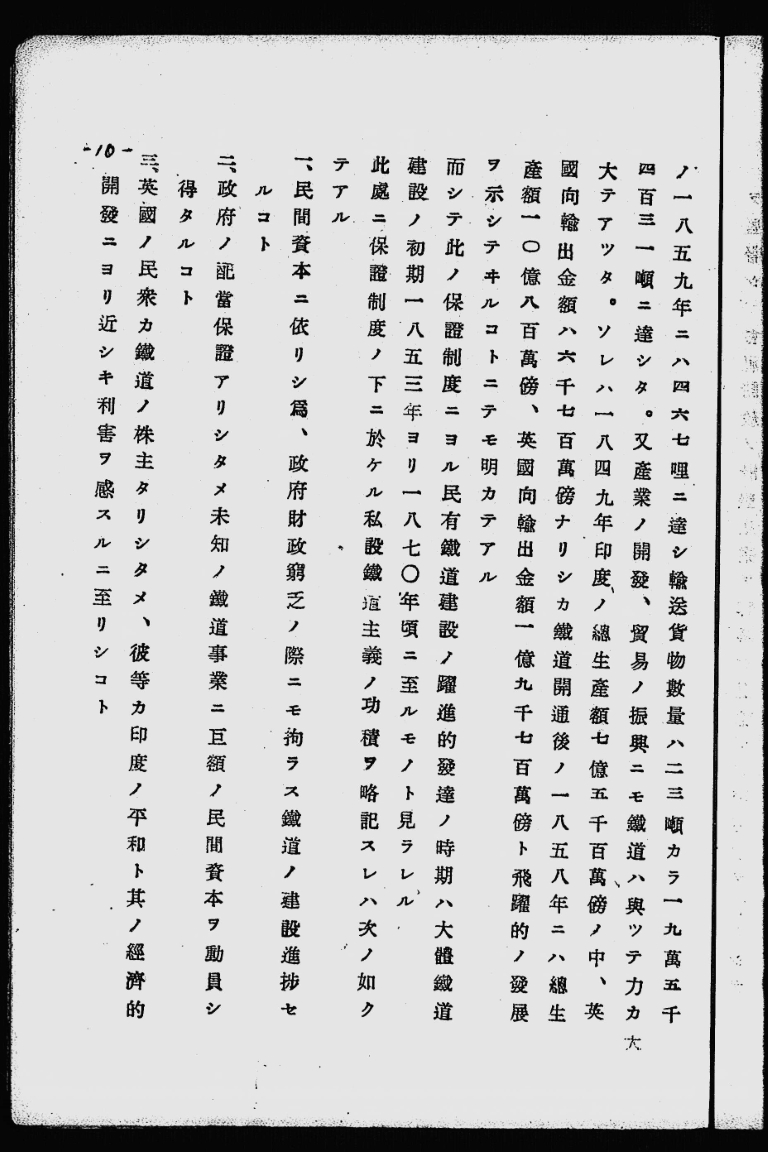 ノ一八五九年ニハ四六七哩ニ達シ輸送貨物數量ハ二三噸カラ一九萬五千
四百三一噸ニ達シタ。又產業ノ開發、貿易ノ振興ニモ鐵道ハ與ツテ力カ大
大テアツタ。ソレハ一八四九年印度ノ總生產額七億五千百萬磅ノ中、英
國向輸出金額ハ六千七百萬磅ナリシカ鐵道開通後ノ一八五八年ニハ總生
產額一〇億八百萬磅、英國向輸出金額一億九千七百萬磅ト飛躍的ノ發展
ヲ示シテヰルコトニテモ明カテアル
而シテ此ノ保證制度ニヨル民有鐵道建設ノ躍進的發達ノ時期ハ大體鐵道
建設ノ初期一八五三年ヨリ一八七〇年頃ニ至ルモノト見ラレル
此處ニ保證制度ノ下ニ於ケル私設鐵道主義ノ功積ヲ略記スレハ次ノ如ク
テアル
一、民間資本ニ依リシ爲、政府財政窮乏ノ際ニモ拘ラス鐵道ノ建設進捗セ
ルコト
二、政府ノ配當保證アリシタメ未知ノ鐵道事業ニ巨額ノ民間資本ヲ動員シ
得タルコト
三、英國ノ民衆カ鐵道ノ株主タリシタメ、彼等カ印度ノ平和ト其ノ經濟的
開發ニヨリ近シキ利害ヲ感スルニ至リシコト
-10-